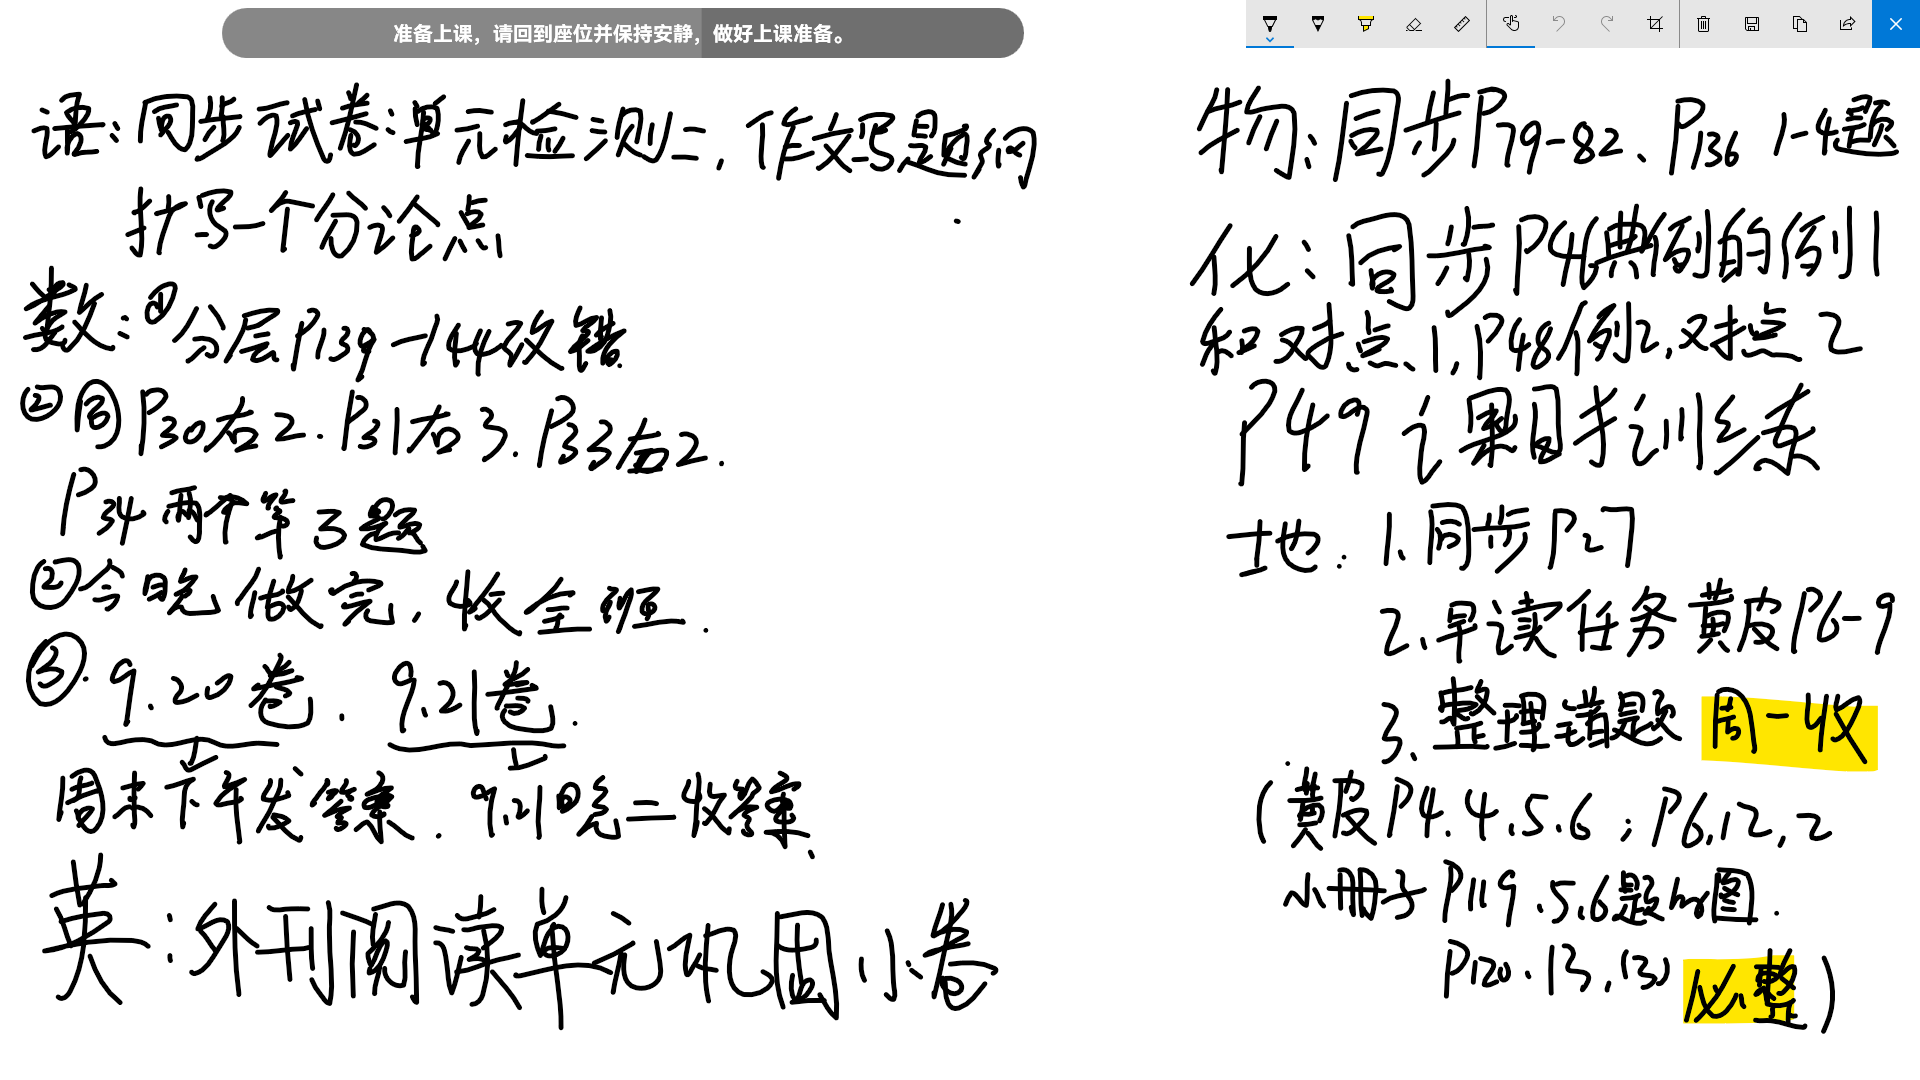 准备上课，请回到座位并保持安静，做好上课准备。
语：同步试卷：单元检测二，作文写题纲
抄写一个分论点
数：①分层P139-144改错
②同P30右2．P31右3．P33右2．
P34两个第3题
②今日晚做完，收全班．
③．9.20卷．9.21卷．
周末下午发答案．9.21日晚二收答案、
英：外刊阅读单元巩固小卷
物：同步P79-82、P136 1-4题
化：同步P46典例的例1
和对点、1，P48例2，对点2
P49 课目标训练
地：1、同步P27
2、早读任务黄皮P6-9
3、整理错题 周一收
（黄皮P4.4.5.6；P6,12,2
小册子P119.5,6题图．
P120.13,(3) 必整）